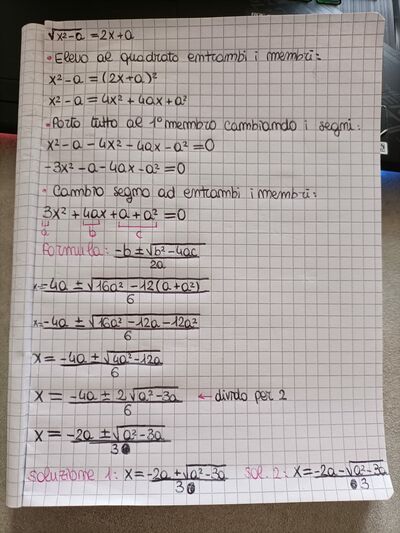 √x²-a = 2x+a
• Elevo al quadrato entrambi i membri:
x²-a = (2x+a)²
x²-a = 4x²+4ax+a²
• Porto tutto al 1° membro cambiando i segni:
x²-a-4x²-4ax-a²=0
-3x²-a-4ax-a²=0
• Cambio segno ad entrambi i membri:
3x²+4ax+a+a²=0
a b c
Formula: -b±√b²-4ac / 2a
x= -4a ± √16a²-12(a+a²) / 6
x= -4a ± √16a²-12a-12a² / 6
x = -4a ± √4a²-12a / 6
x = -4a ± 2√a²-3a / 6 ← divido per 2
x = -2a ± √a²-3a / 3
Soluzione 1: x = -2a+√a²-3a / 3 Sol. 2: x = -2a-√a²-3a / 3